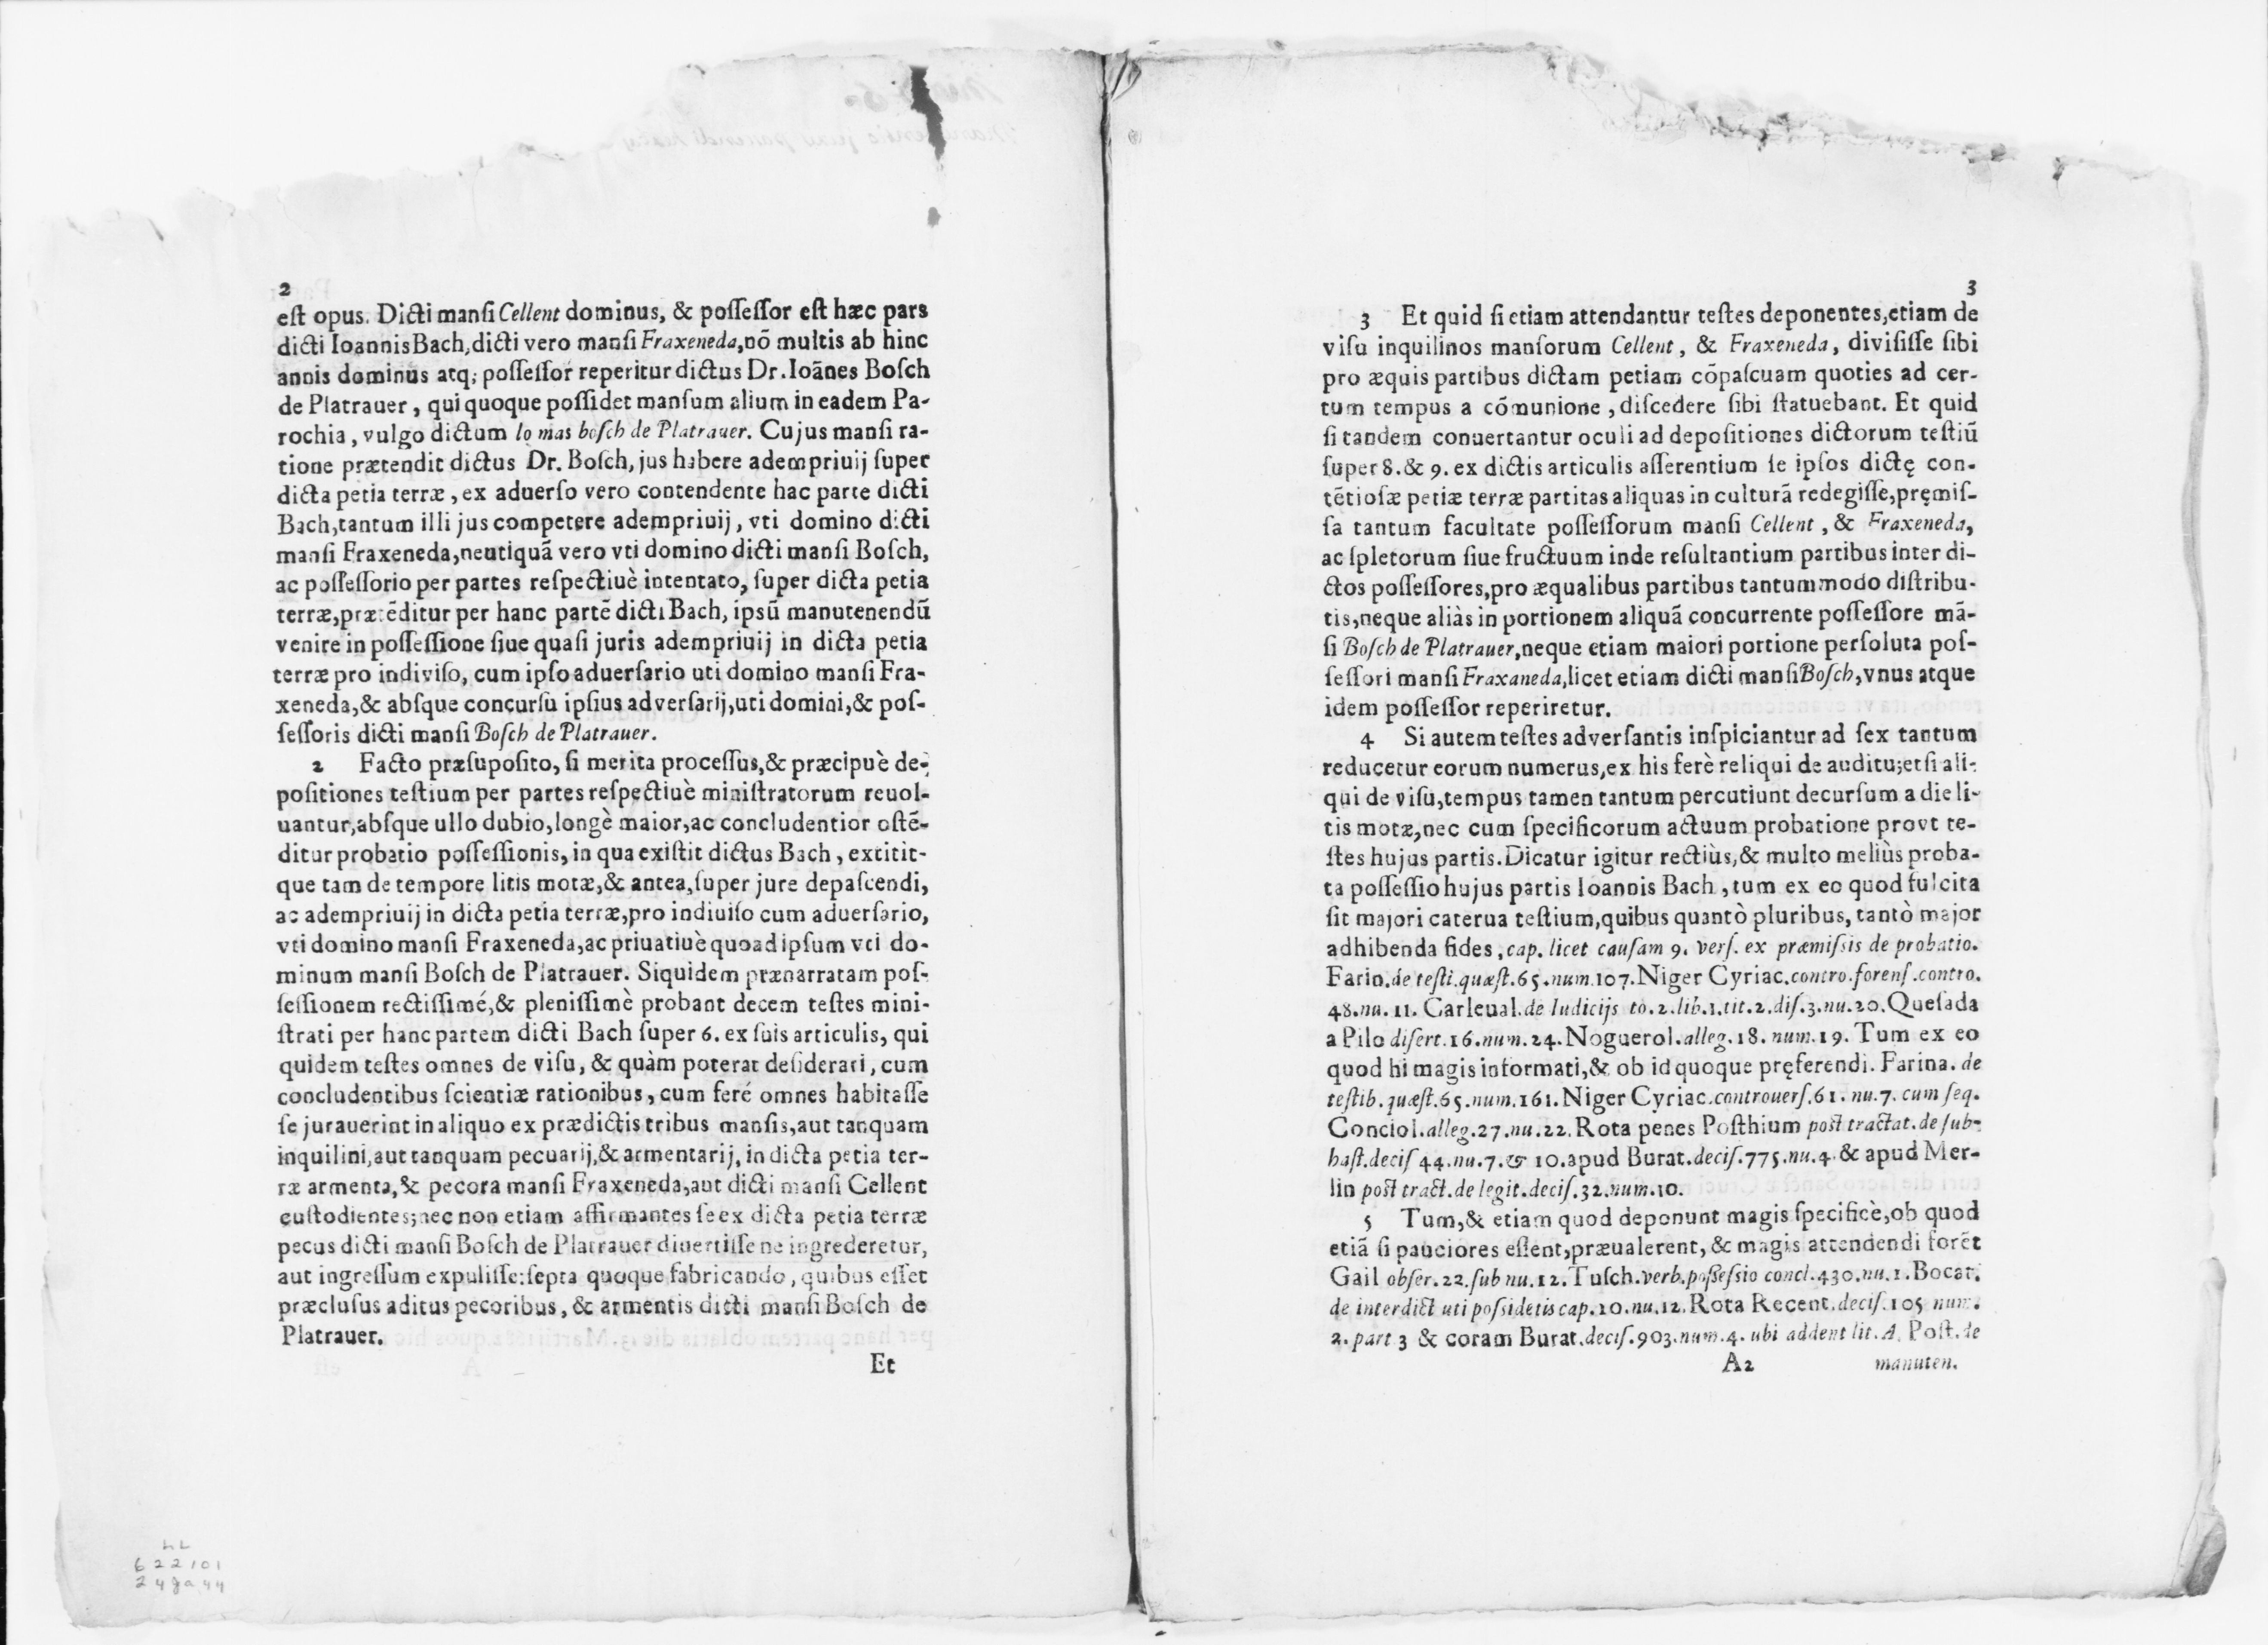 2
eſt opus. Dicti manſi Cellent dominus, & poſſeſſor eſt hæc pars
dicti Ioannis Bach, dicti vero manſi Fraxeneda, nō multis ab hinc
annis dominus atq; poſſeſſor reperitur dictus Dr. Ioānes Boſch
de Platrauer, qui quoque poſſidet manſum alium in eadem Pa-
rochia, vulgo dictum lo mas boſch de Platrauer. Cujus manſi ra-
tione prætendit dictus Dr. Boſch, jus habere adempriuij ſuper
dicta petia terræ, ex aduerſo vero contendente hac parte dicti
Bach, tantum illi jus competere adempriuij, vti domino dicti
manſi Fraxeneda, neutiquā vero vti domino dicti manſi Boſch,
ac poſſeſſorio per partes reſpectiuè intentato, ſuper dicta petia
terræ, prætēditur per hanc partē dicti Bach, ipsū manutenendū
venire in poſſeſſione ſiue quaſi juris adempriuij in dicta petia
terræ pro indiviſo, cum ipſo aduerſario uti domino manſi Fra-
xeneda, & abſque concurſu ipſius adverſarij, uti domini, & poſ-
ſeſſoris dicti manſi Boſch de Platrauer.
2 Facto præſupoſito, ſi merita proceſſus, & præcipuè de-
poſitiones teſtium per partes reſpectiuè miniſtratorum reuol-
uantur, abſque ullo dubio, longè maior, ac concludentior oſtē-
ditur probatio poſſeſſionis, in qua exiſtit dictus Bach, extitit-
que tam de tempore litis motæ, & antea, ſuper jure depaſcendi,
ac adempriuij in dicta petia terræ, pro indiuiſo cum aduerſario,
vti domino manſi Fraxeneda, ac priuatiuè quoad ipſum vti do-
minum manſi Boſch de Platrauer. Siquidem prænarratam poſ-
ſeſſionem rectiſſimé, & pleniſſimè probant decem teſtes mini-
ſtrati per hanc partem dicti Bach ſuper 6. ex ſuis articulis, qui
quidem teſtes omnes de viſu, & quàm poterat deſiderari, cum
concludentibus ſcientiæ rationibus, cum feré omnes habitaſſe
ſe jurauerint in aliquo ex prædictis tribus manſis, aut tanquam
inquilini, aut tanquam pecuarij, & armentarij, in dicta petia ter-
ræ armenta, & pecora manſi Fraxeneda, aut dicti manſi Cellent
cuſtodientes; nec non etiam affirmantes ſe ex dicta petia terræ
pecus dicti manſi Boſch de Platrauer diuertiſſe ne ingrederetur,
aut ingreſſum expuliſſe: ſepta quoque fabricando, quibus eſſet
præcluſus aditus pecoribus, & armentis dicti manſi Boſch de
Platrauer.
Et
LL
622101
24ga44
3
3 Et quid ſi etiam attendantur teſtes deponentes, etiam de
viſu inquilinos manſorum Cellent, & Fraxeneda, diviſiſſe ſibi
pro æquis partibus dictam petiam cōpaſcuam quoties ad cer-
tum tempus a cōmunione, diſcedere ſibi ſtatuebant. Et quid
ſi tandem conuertantur oculi ad depoſitiones dictorum teſtiū
ſuper 8. & 9. ex dictis articulis aſſerentium ſe ipſos dictę con-
tētioſæ petiæ terræ partitas aliquas in culturā redegiſſe, pręmiſ-
ſa tantum facultate poſſeſſorum manſi Cellent, & Fraxeneda,
ac ſpletorum ſiue fructuum inde reſultantium partibus inter di-
ctos poſſeſſores, pro æqualibus partibus tantummodo diſtribu-
tis, neque aliàs in portionem aliquā concurrente poſſeſſore mā-
ſi Boſch de Platrauer, neque etiam maiori portione perſoluta poſ-
ſeſſori manſi Fraxaneda, licet etiam dicti manſi Boſch, vnus atque
idem poſſeſſor reperiretur.
4 Si autem teſtes adverſantis inſpiciantur ad ſex tantum
reducetur eorum numerus, ex his ferè reliqui de auditu; et ſi ali-
qui de viſu, tempus tamen tantum percutiunt decurſum a die li-
tis motæ, nec cum ſpecificorum actuum probatione provt te-
ſtes hujus partis. Dicatur igitur rectiùs, & multo meliùs proba-
ta poſſeſſio hujus partis Ioannis Bach, tum ex eo quod fulcita
ſit majori caterua teſtium, quibus quantò pluribus, tantò major
adhibenda fides, cap. licet cauſam 9. verſ. ex præmiſsis de probatio.
Farin. de teſti. quæſt. 65. num. 107. Niger Cyriac. contro. forenſ. contro.
48. nu. 11. Carleual. de Iudicijs to. 2. lib. 1. tit. 2. diſ. 3. nu. 20. Queſada
a Pilo diſert. 16. num. 24. Noguerol. alleg. 18. num. 19. Tum ex eo
quod hi magis informati, & ob id quoque pręferendi. Farina. de
teſtib. quæſt. 65. num. 161. Niger Cyriac. controuerſ. 61. nu. 7. cum ſeq.
Conciol. alleg. 27. nu. 22. Rota penes Poſthium poſt tractat. de ſub-
haſt. deciſ 44. nu. 7. & 10. apud Burat. deciſ. 775. nu. 4. & apud Mer-
lin poſt tract. de legit. deciſ. 32. num. 10.
5 Tum, & etiam quod deponunt magis ſpecificè, ob quod
etiā ſi pauciores eſſent, præualerent, & magis attendendi forēt
Gail obſer. 22. ſub nu. 12. Tuſch. verb. poſſeſsio concl. 430. nu. 1. Bocat.
de interdict uti poſsidetis cap. 10. nu. 12. Rota Recent. deciſ. 105 num.
2. part 3 & coram Burat. deciſ. 903. num. 4. ubi addent lit. A. Poſt. de
A2 manuten.